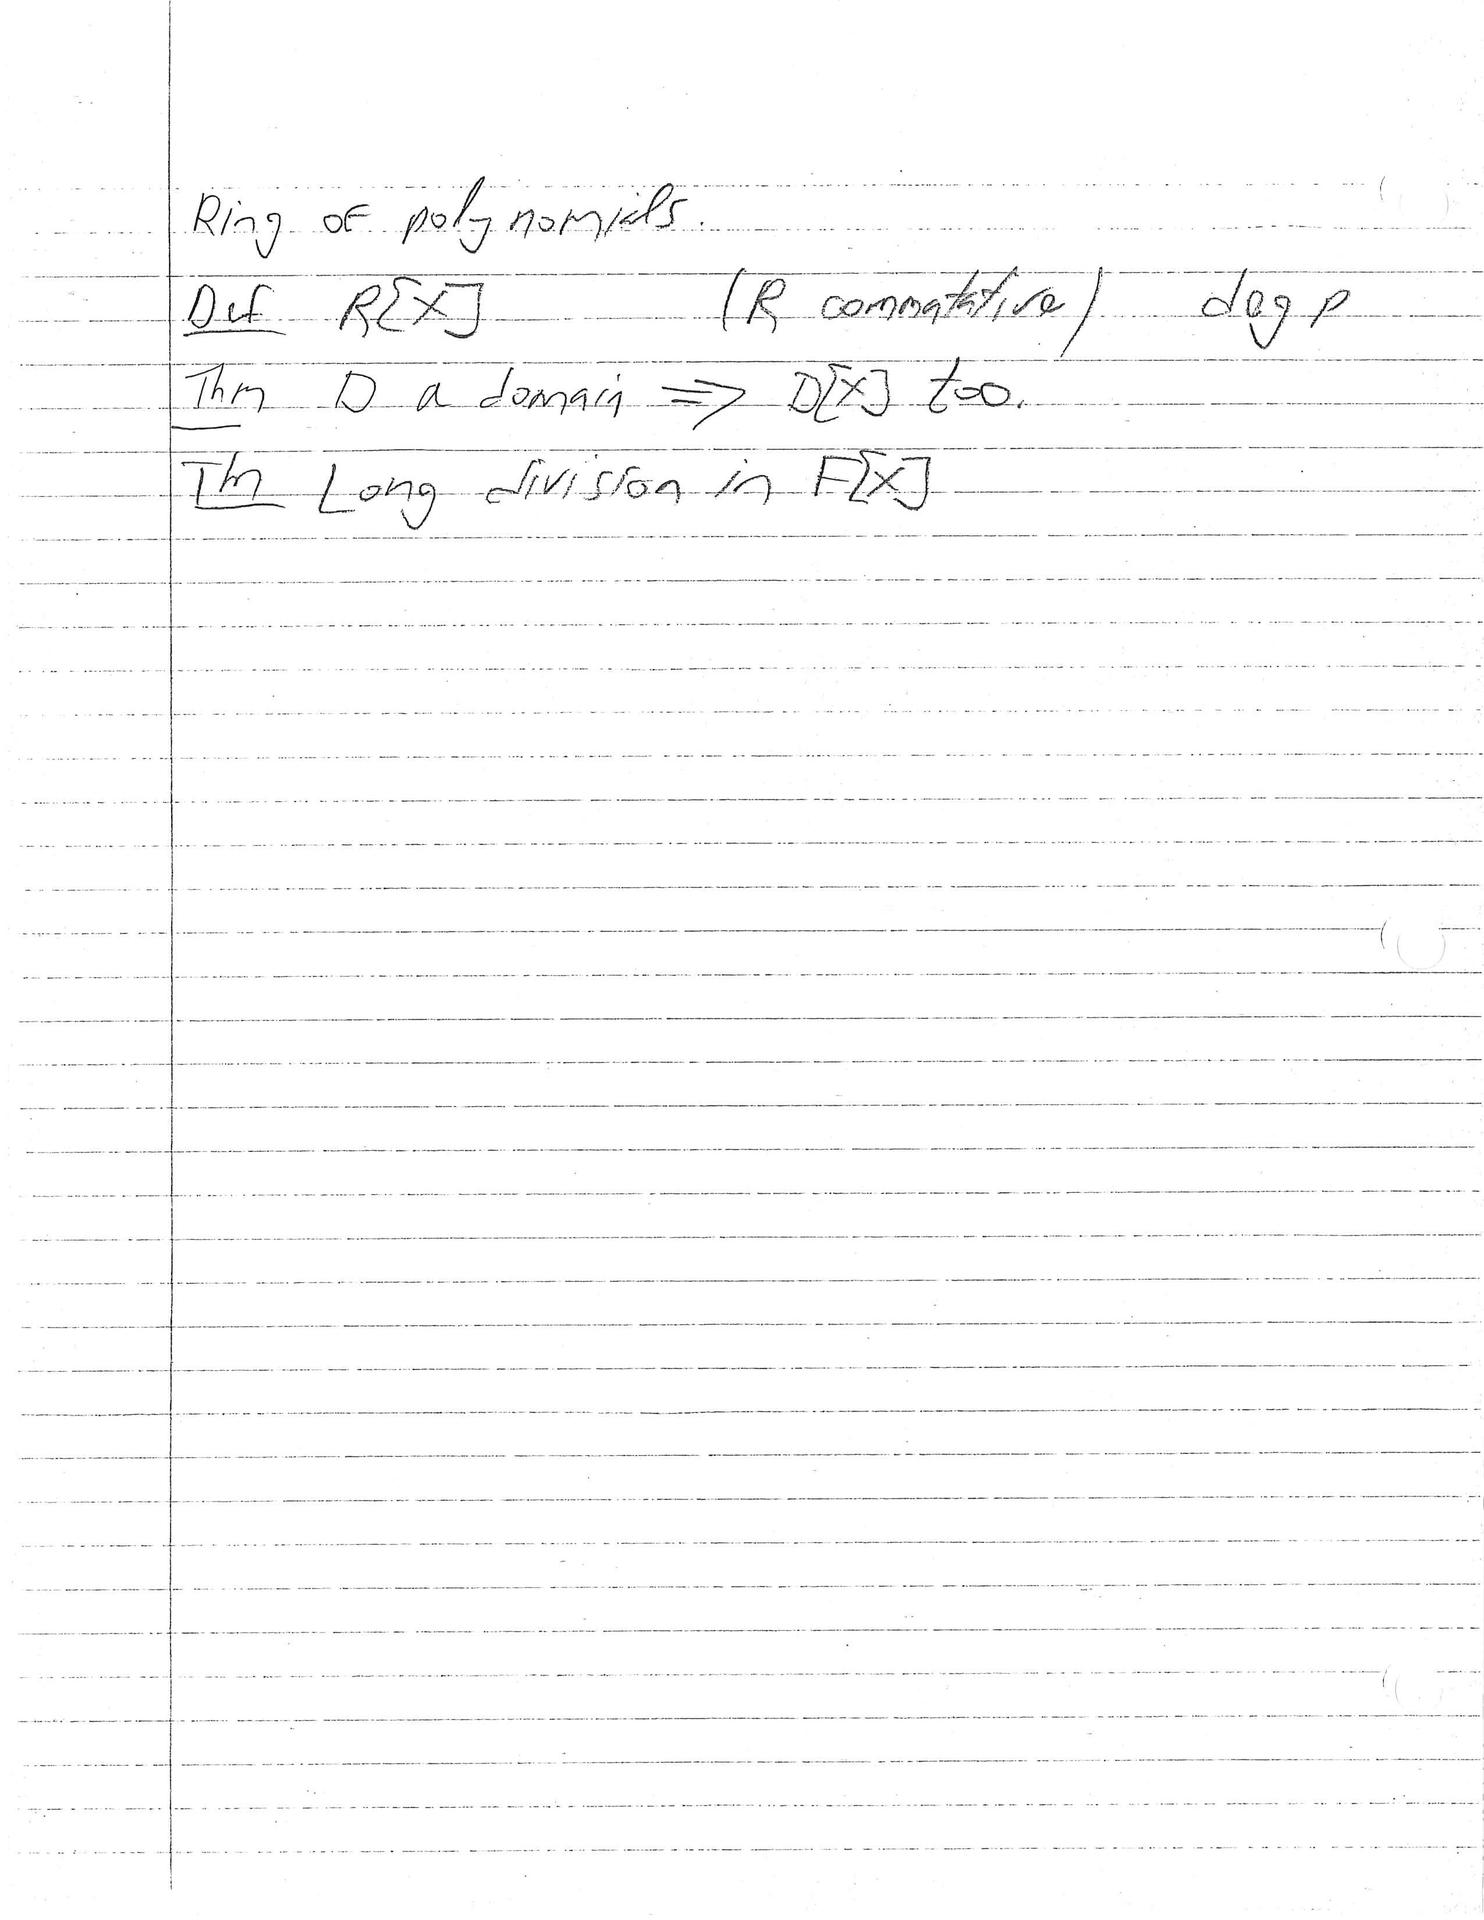 Ring of polynomials.
Def R[X] (R commutative) deg p
Thm D a domain => D[X] too.
Thm Long division in F[X]